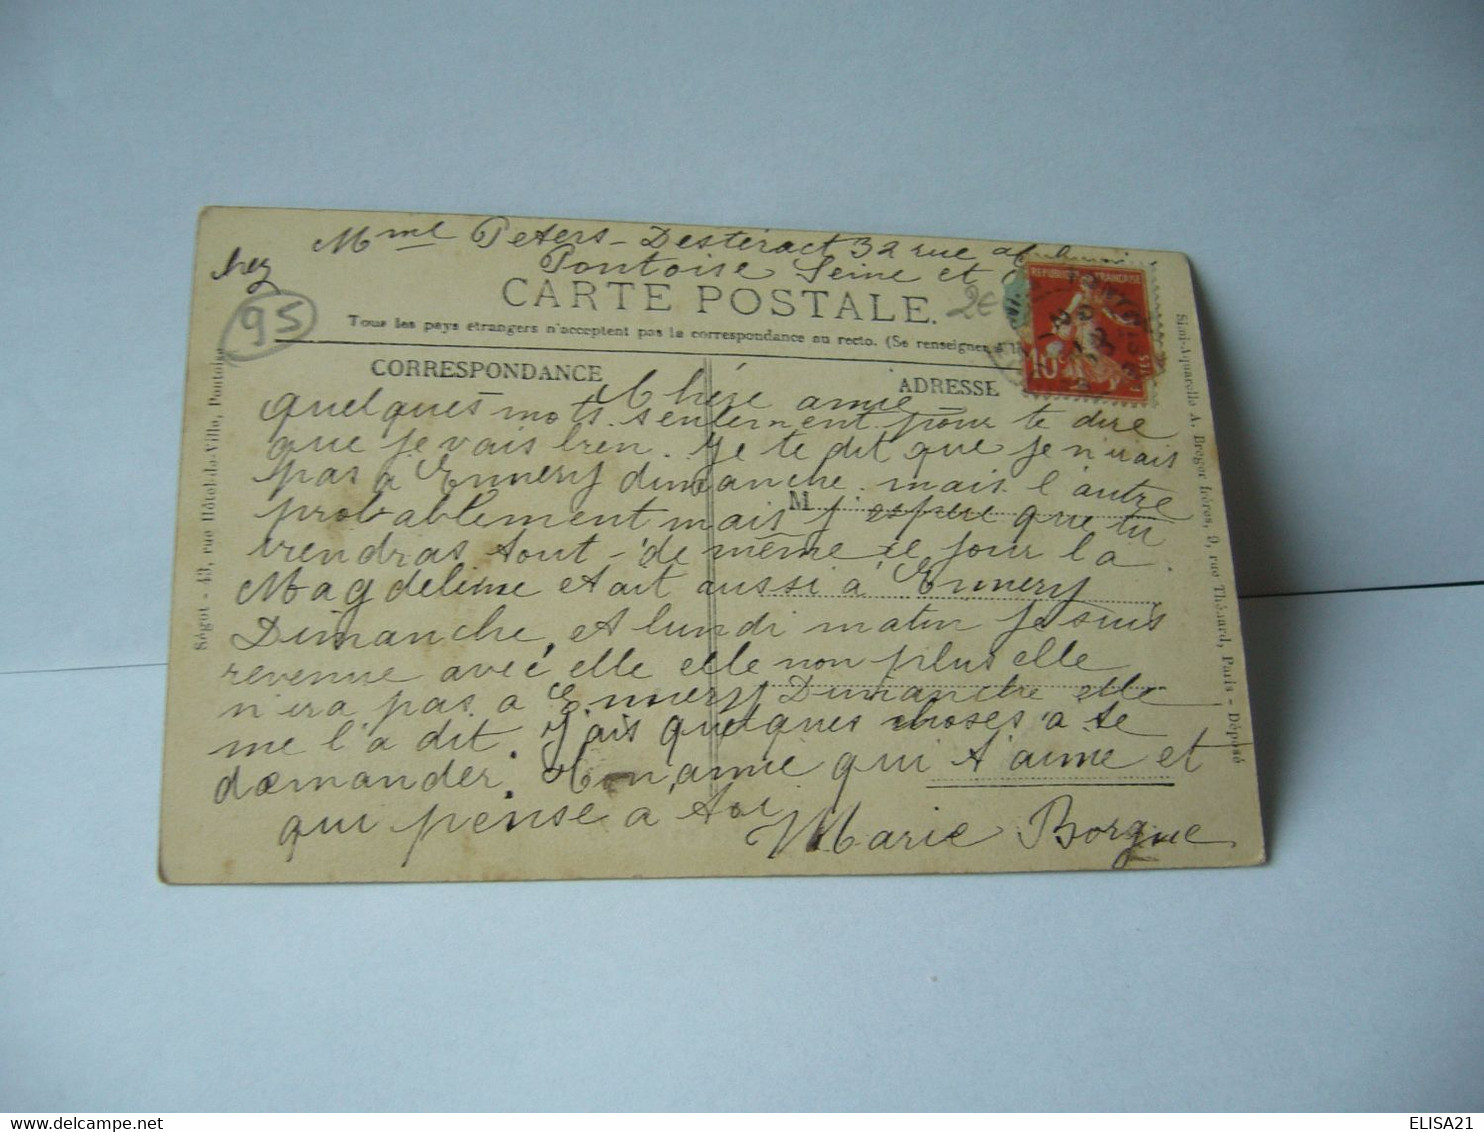 chez Mme Peters-Desteract 32 rue
Pontoise Seine et
95
CARTE POSTALE.
2€
Tous les pays étrangers n'acceptent pas la correspondance au recto. (Se renseigner
CORRESPONDANCE
ADRESSE
REPUBLIQUE FRANÇAISE
10c
M
Chère amie
quelques mots seulement pour te dire
que je vais bien. Je te dit que je n'irais
pas à Ennery dimanche mais l'autre
probablement mais j'espere que tu
viendras tout-de même ce jour la.
Magdeleine etait aussi à Ennery
Dimanche, et lundi matin je suis
revenue avec elle elle non plus elle
n'ira pas a Ennery Dimanche elle
me l'a dit. J'ais quelques choses à te
demander. Ton amie qui t'aime et
qui pense a toi
Marie Borgne
Ségot - 43, rue Hôtel-de-Ville, Pontoise
Simi-Aquarelle A. Breger frères, 9, rue Thénard, Paris - Déposé
ELISA21